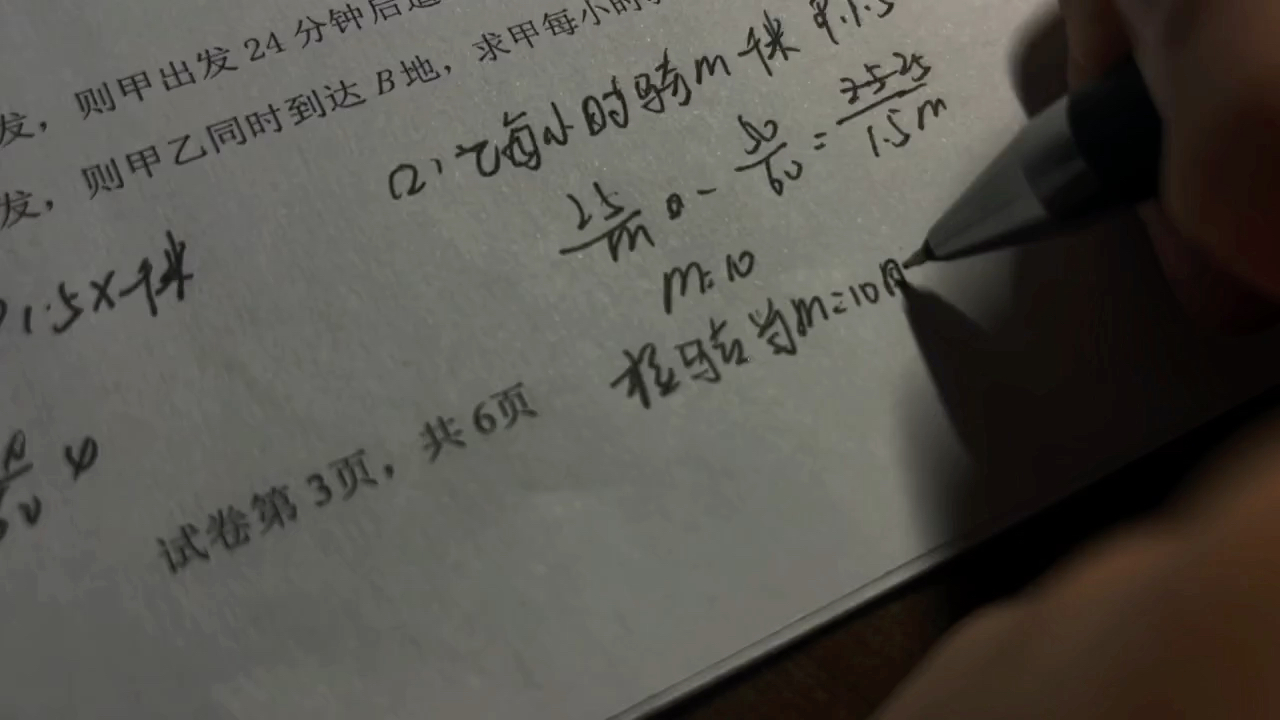 发，则甲出发24分钟后追
发，则甲乙同时到达B地，求甲每小时
(2)乙每小时骑m千米 甲1.5
25/m - 50/60 = 25-25/1.5m
m=10
检验当m=10时
1.5x千米
试卷第3页，共6页